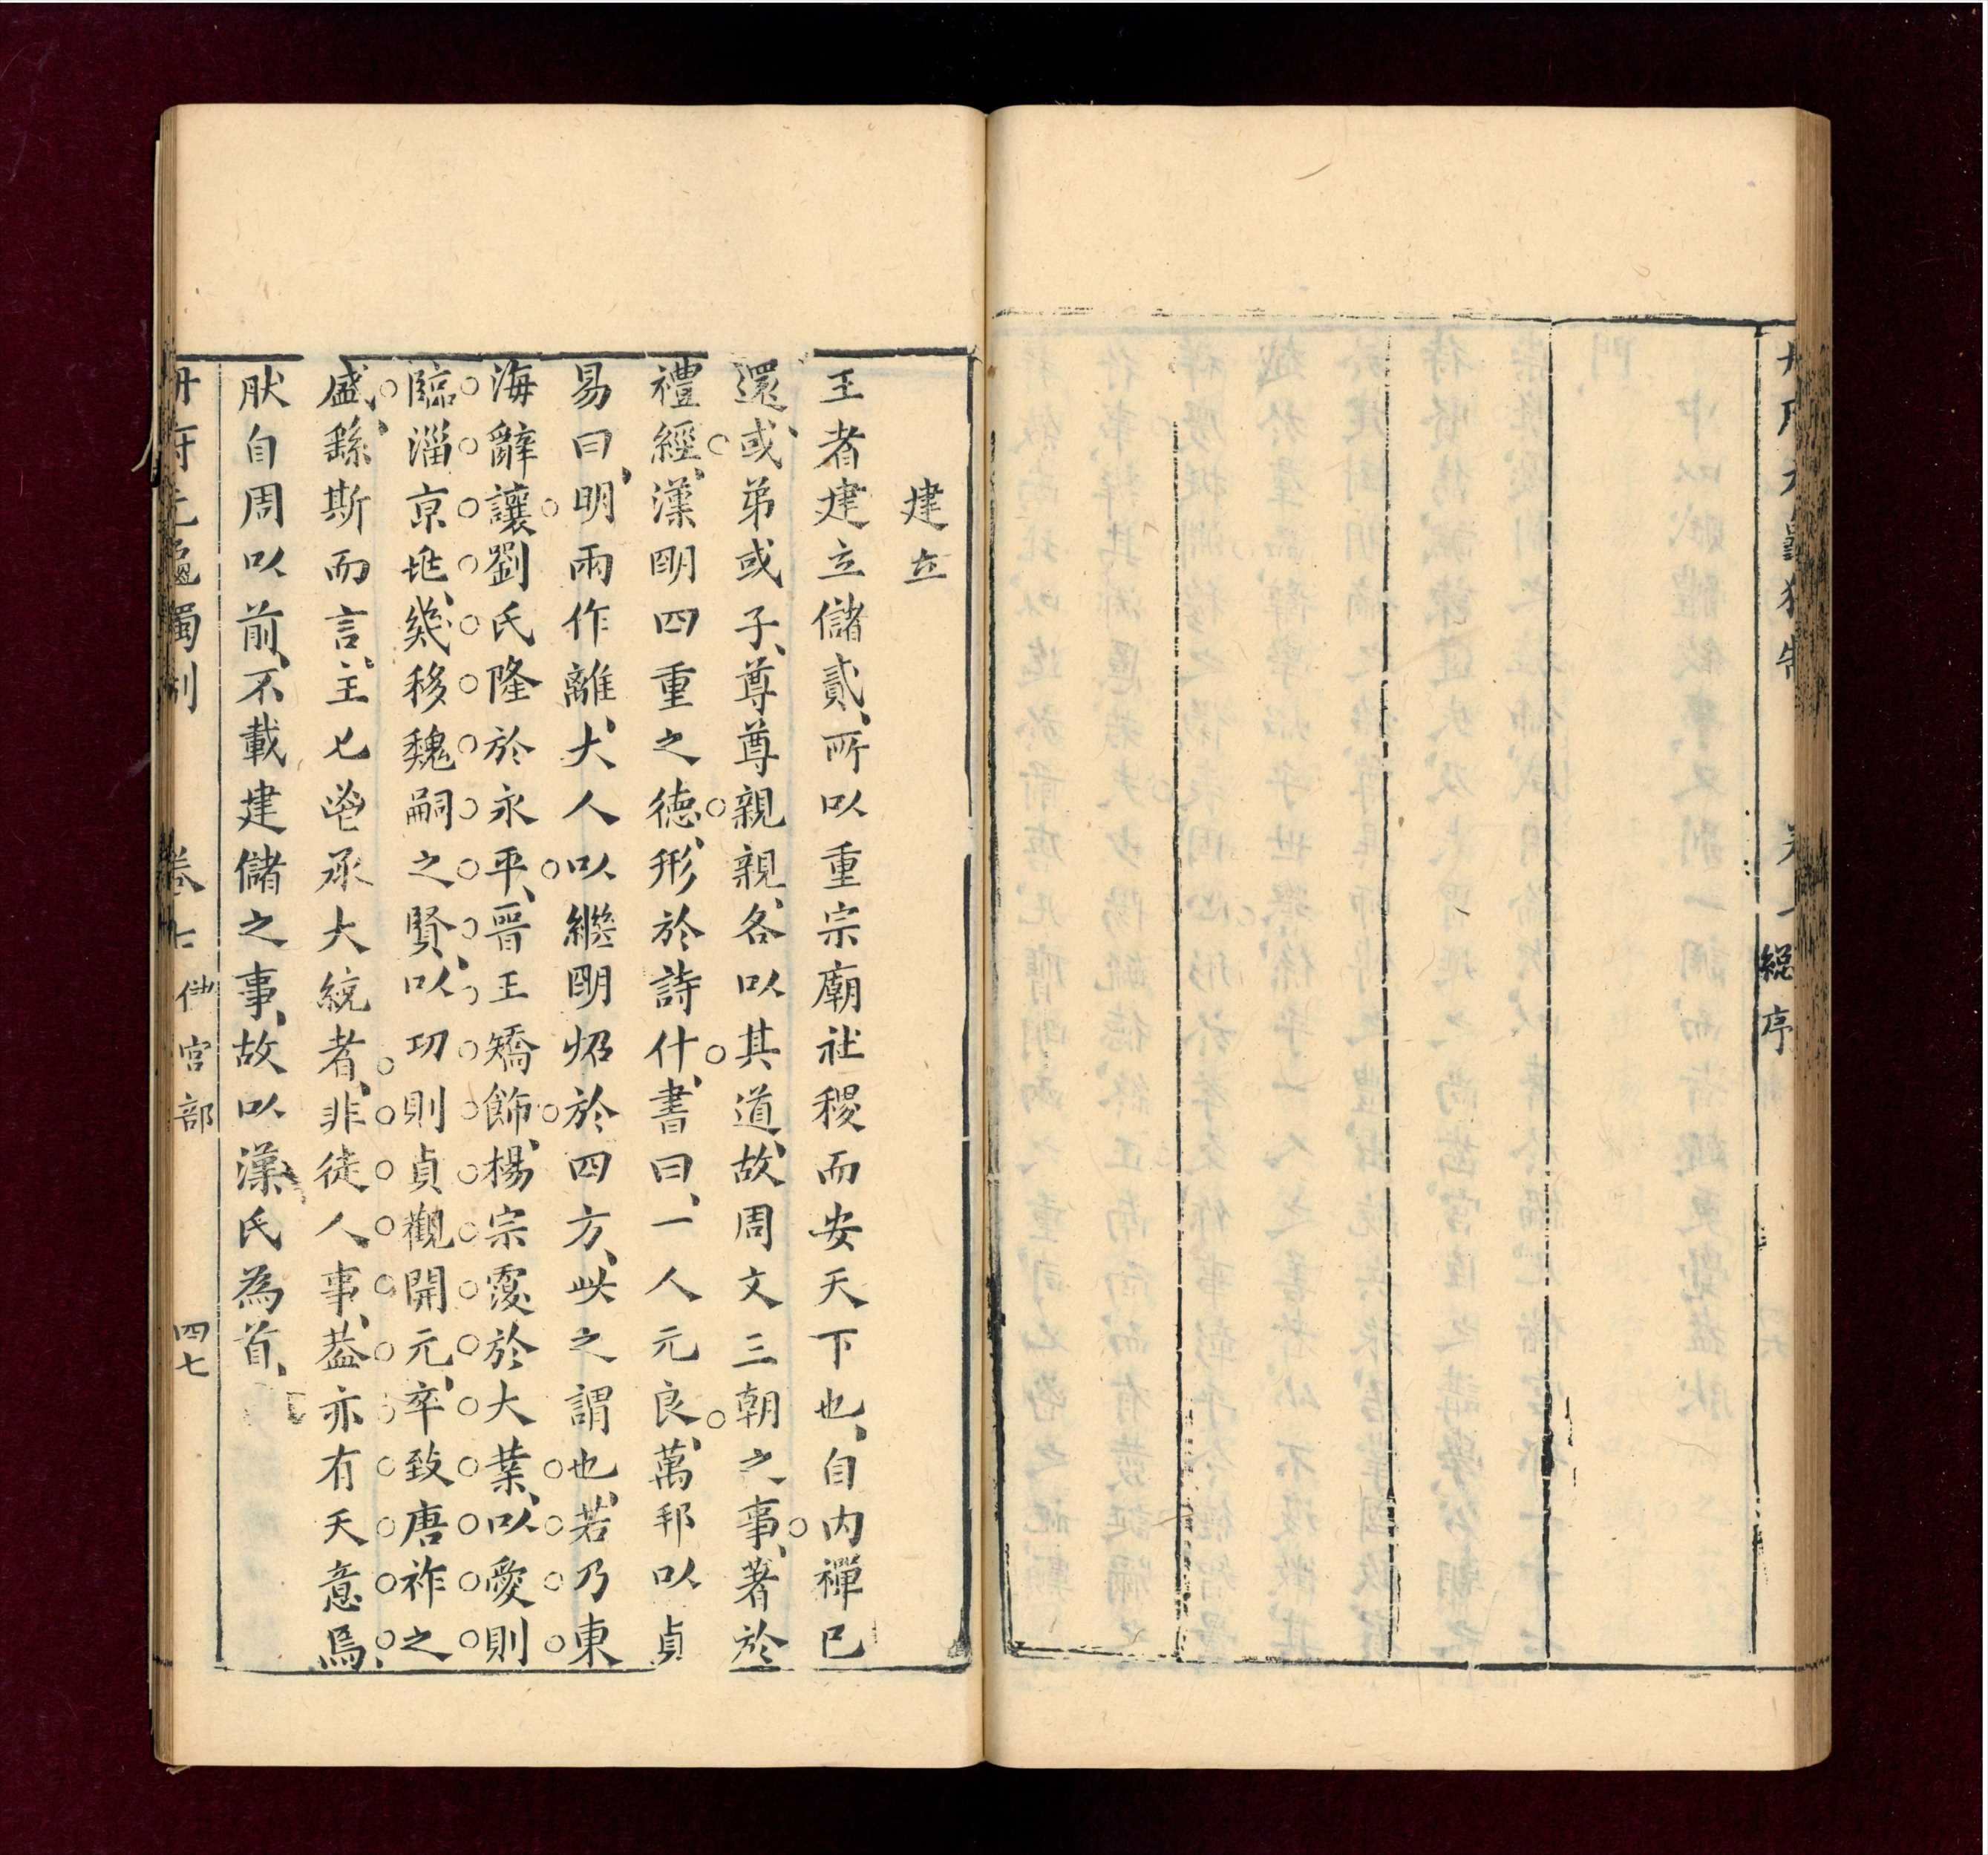 總序
建立
王者建立儲貳、所以重宗廟社稷而安天下也、自內禪已
還、或弟或子、尊尊親親、各以其道、故周文三朝之事、著於
禮經、漢明四重之德、形於詩什、書曰、一人元良、萬邦以貞
易曰、明兩作離、大人以繼明炤於四方、此之謂也、若乃東
海辭讓劉氏隆於永平、晉王矯飾、楊宗覆於大業、以愛則
臨淄京兆、幾移魏嗣之賢、以功則貞觀開元、卒致唐祚之
盛、繇斯而言、主匕鬯承大統者、非徒人事、葢亦有天意焉、
肰自周以前、不載建儲之事、故以漢氏為首、
冊府元龜獨制　卷七　儲宮部　四七